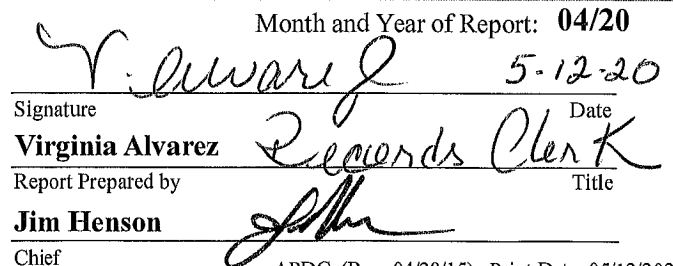 Month and Year of Report: 04/20
V. Alvarez 5-12-20
Signature Date
Virginia Alvarez Records Clerk
Report Prepared by Title
Jim Henson
Chief
(Rev. 04/28/15) Print Date